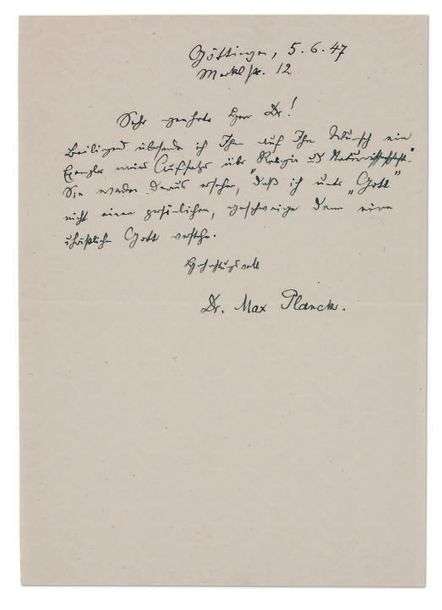 Göttingen, 5.6.47
Merkelstr. 12
Sehr geehrter Herr Dr.!
Beiliegend übersende ich Ihnen auf Ihren Wunsch ein
Exemplar meines Aufsatzes über Religion und Naturwissenschaft.
Sie werden daraus ersehen, daß ich unter „Gott"
nicht einen persönlichen, geschweige denn einen
christlichen Gott verstehe.
Hochachtungsvoll
Dr. Max Planck.